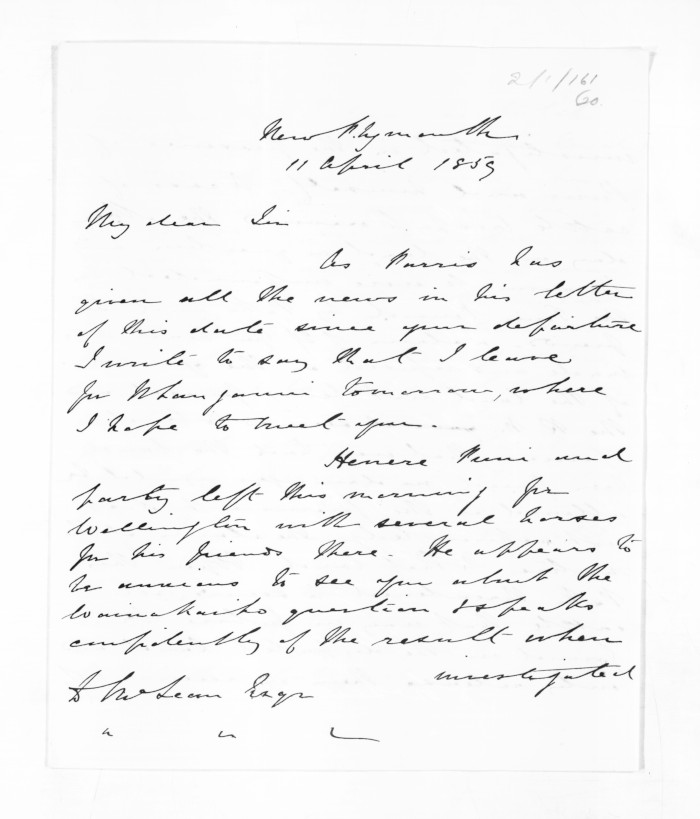 2/1/161
60.
New Plymouth
11 April 1859
My dear Sir
As Parris has
given all the news in his letter
of this date since your departure
I write to say that I leave
for Whanganui tomorrow, where
I hope to meet you.
Henere Puni and
party left this morning for
Wellington with several horses
for his friends there. He appears to
be anxious to see you about the
Waiwakaiho question & speaks
confidently of the result when
investigated
D McLean Esqr